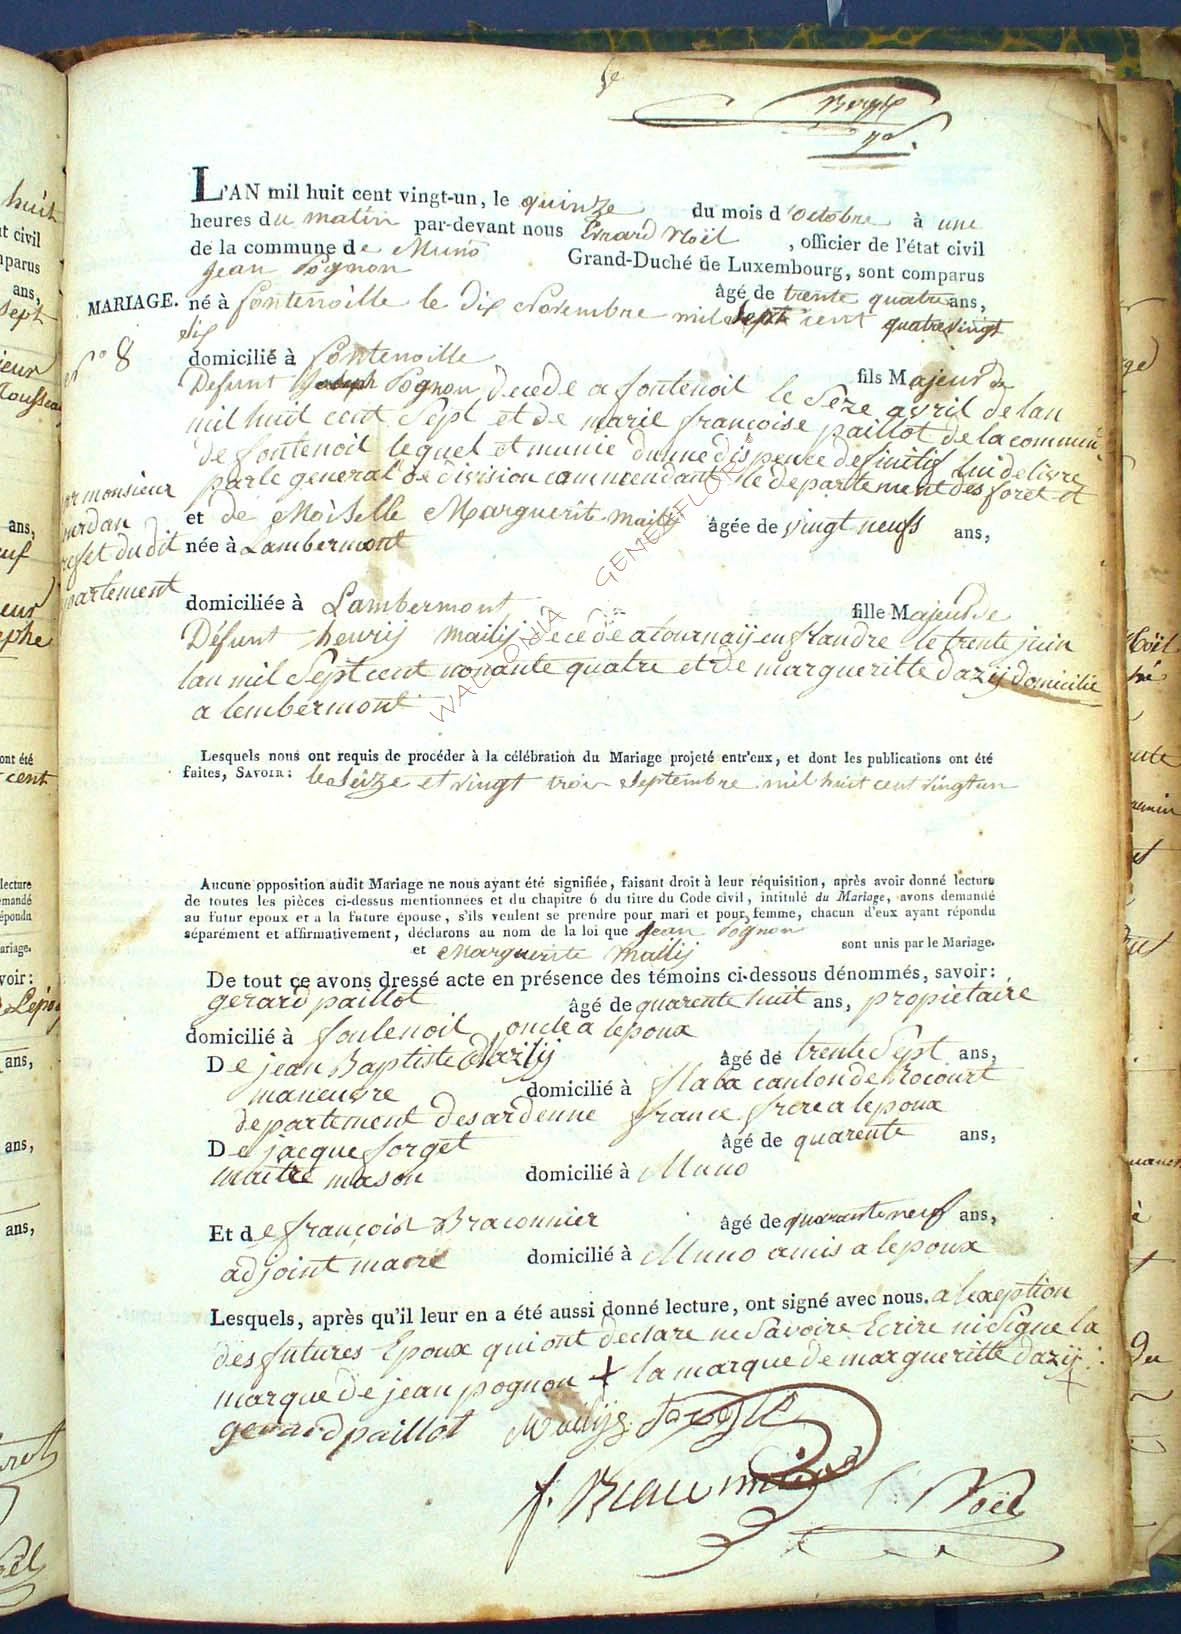 L'AN mil huit cent vingt-un, le quinze du mois d'octobre à une
heures du matin par-devant nous Erard Noël , officier de l'état civil
de la commune de Muno Grand-Duché de Luxembourg, sont comparus
jean Pognon âgé de trente quatre ans,
MARIAGE. né à fontenoille le dix Novembre mil Sept cent quatre vingt
Six
N° 8
domicilié à fontenoille fils Majeur de
Defunt Joseph Pognon decede a fontenoil le Seze avril de lan
mil huit cent Sept et de marie françoise paillot de la commun
de fontenoil lequel et munie dune dispence definitif lui delivre
par le general de division commendant le departement des foret et
par monsieur
jurdan
prefet du dit
partement
et de Moiselle Marguerit mailij âgée de vingt neufs ans,
née à Lambermont
domiciliée à Lambermont fille Majeur de
Défunt henrij mailij decede a tournaij en flandre le trente juin
lan mil Sept cent nonante quatre et de margueritte dazij domicilie
a lembermont
Lesquels nous ont requis de procéder à la célébration du Mariage projeté entr'eux, et dont les publications ont été
faites, SAVOIR: le Seize et vingt trois Septembre mil huit cent vingt un
Aucune opposition audit Mariage ne nous ayant été signifiée, faisant droit à leur réquisition, après avoir donné lecture
de toutes les pièces ci-dessus mentionnées et du chapitre 6 du titre du Code civil, intitulé du Mariage, avons demandé
au futur epoux et a la future épouse, s'ils veulent se prendre pour mari et pour femme, chacun d'eux ayant répondu
séparément et affirmativement, déclarons au nom de la loi que jean Pognon
et Marguerite Mailij sont unis par le Mariage.
De tout ce avons dressé acte en présence des témoins ci-dessous dénommés, savoir:
gerard paillot âgé de quarente huit ans, propietaire
domicilié à fontenoil oncle a lepoux
De jean Baptiste Mailij âgé de trente Sept ans,
maneuvre domicilié à flaba canton de Rocourt
departement des ardenne france frere a lepoux
De jacque forget âgé de quarente ans,
maitre mason domicilié à Muno
Et de françois Braconnier âgé de quarante neuf ans,
adjoint maire domicilié à Muno amis a lepoux
Lesquels, après qu'il leur en a été aussi donné lecture, ont signé avec nous. a lexeption
des futures Epoux qui ont declare ne Savoire Ecrire ni Signe la
marque de jean pognon + la marque de margueritte dazij +
gerard paillot
Noël
WALLONIA GENEANFLORE